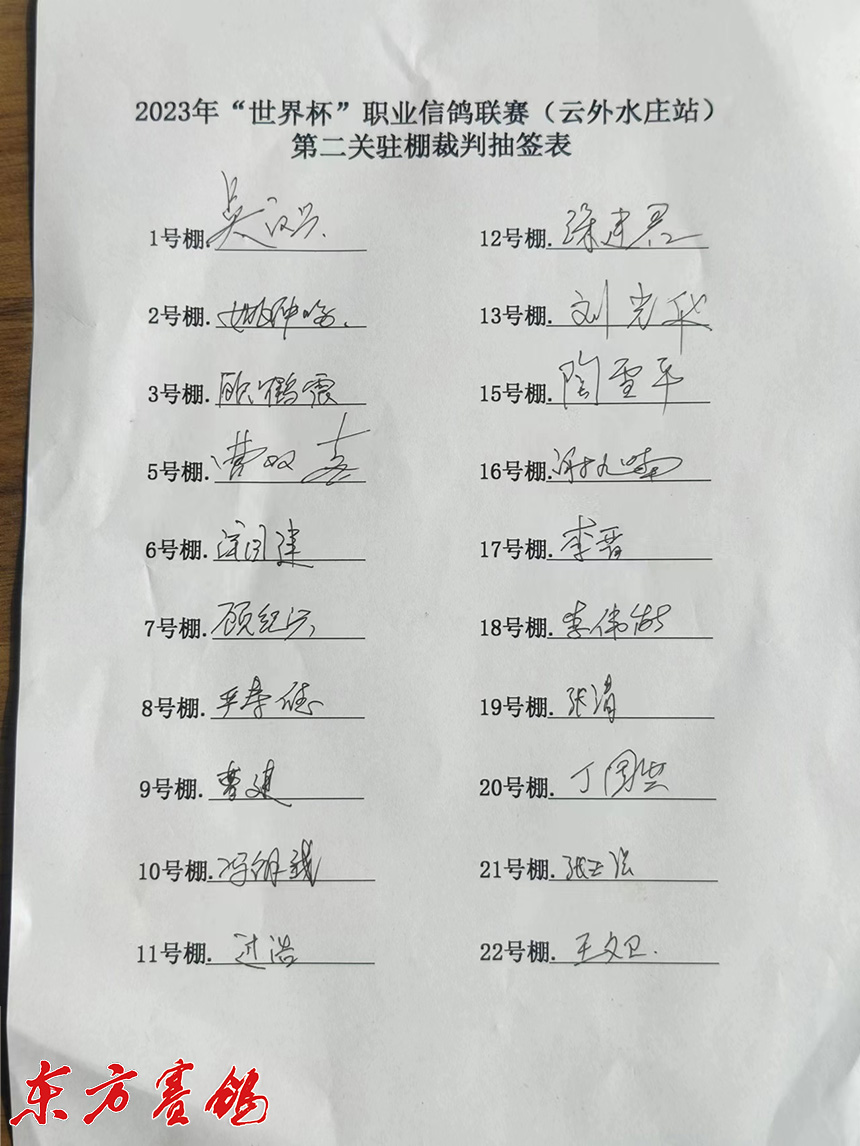 2023年“世界杯”职业信鸽联赛（云外水庄站）
第二关驻棚裁判抽签表
1号棚. 吴汉兴.
2号棚. 姚钟鸣.
3号棚. 顾鹤震
5号棚. 曹双喜
6号棚. 建
7号棚. 顾纪兴
8号棚. 严春德
9号棚. 曹建
10号棚. 冯锦钱
11号棚. 过浩
12号棚. 徐建君
13号棚. 刘光华
15号棚. 陶雪平
16号棚. 谢九
17号棚. 李晋
18号棚. 李伟
19号棚. 张清
20号棚. 丁国洪
21号棚. 张正法
22号棚. 王文卫.
东方赛鸽